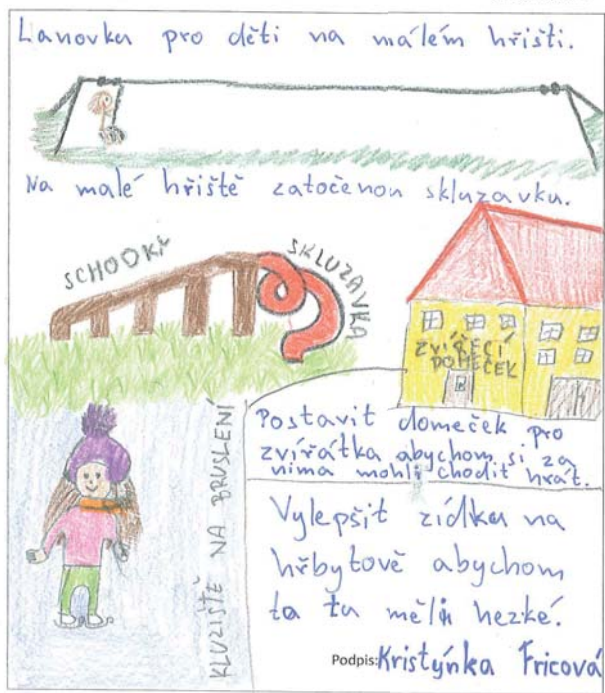 Lanovka pro děti na málém hřišti.
Na malé hřiště zatočenou skluzavku.
SCHODKY
SKLUZAVKA
ZVÍŘECÍ
DOMEČEK
Postavit domeček pro
zvířátka abychom si za
nima mohli chodit hrát.
KLUZIŠTĚ NA BRUSLENÍ
Vylepšit zídku na
hřbytově abychom
to tu měli hezké.
Podpis: Kristýnka Fricová